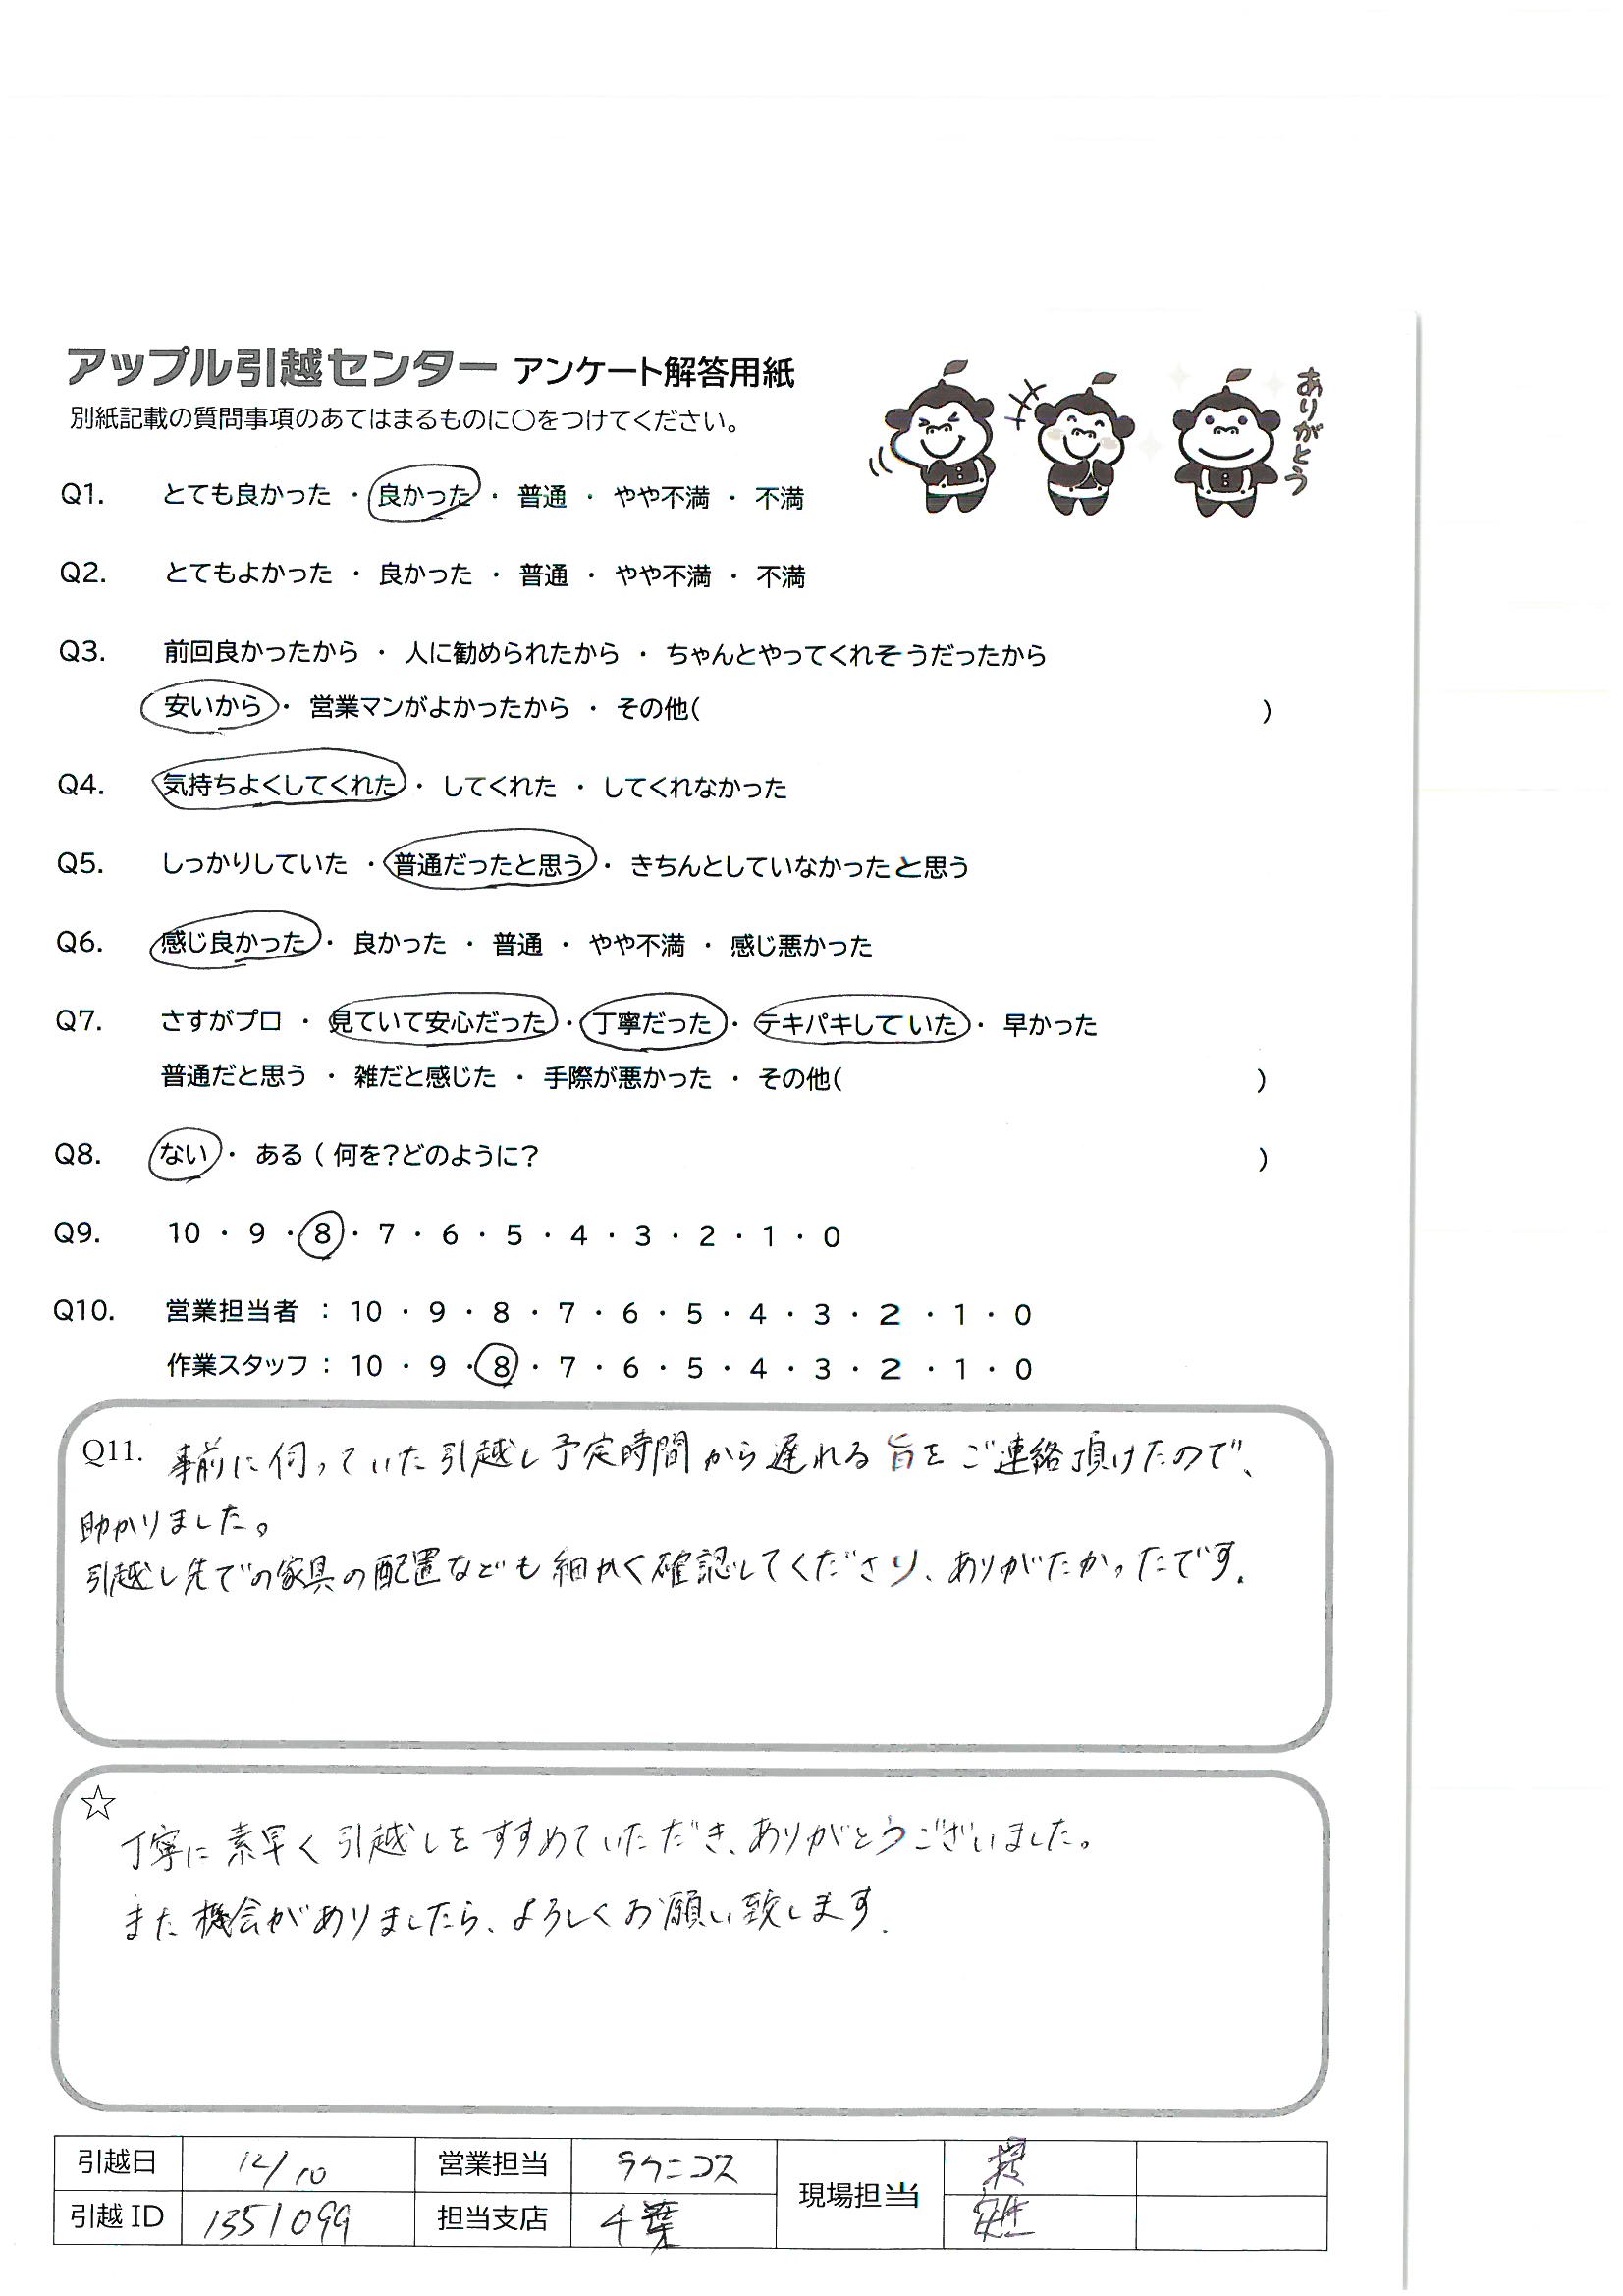 アップル引越センター アンケート解答用紙
別紙記載の質問事項のあてはまるものに〇をつけてください。
ありがとう
Q1. とても良かった ・ 良かった ・ 普通 ・ やや不満 ・ 不満
Q2. とてもよかった ・ 良かった ・ 普通 ・ やや不満 ・ 不満
Q3. 前回良かったから ・ 人に勧められたから ・ ちゃんとやってくれそうだったから
安いから ・ 営業マンがよかったから ・ その他( )
Q4. 気持ちよくしてくれた ・ してくれた ・ してくれなかった
Q5. しっかりしていた ・ 普通だったと思う ・ きちんとしていなかったと思う
Q6. 感じ良かった ・ 良かった ・ 普通 ・ やや不満 ・ 感じ悪かった
Q7. さすがプロ ・ 見ていて安心だった ・ 丁寧だった ・ テキパキしていた ・ 早かった
普通だと思う ・ 雑だと感じた ・ 手際が悪かった ・ その他( )
Q8. ない ・ ある ( 何を?どのように? )
Q9. 10 ・ 9 ・ 8 ・ 7 ・ 6 ・ 5 ・ 4 ・ 3 ・ 2 ・ 1 ・ 0
Q10. 営業担当者 : 10 ・ 9 ・ 8 ・ 7 ・ 6 ・ 5 ・ 4 ・ 3 ・ 2 ・ 1 ・ 0
作業スタッフ : 10 ・ 9 ・ 8 ・ 7 ・ 6 ・ 5 ・ 4 ・ 3 ・ 2 ・ 1 ・ 0
Q11. 事前に伺っていた引越し予定時間から遅れる旨をご連絡頂けたので、
助かりました。
引越し先での家具の配置なども細かく確認してくださり、ありがたかったです.
☆
丁寧に素早く引越しをすすめていただき、ありがとうございました。
また機会がありましたら、よろしくお願い致します.
引越日 12/10 営業担当 ラクニコス 現場担当
引越 ID 1351099 担当支店 千葉